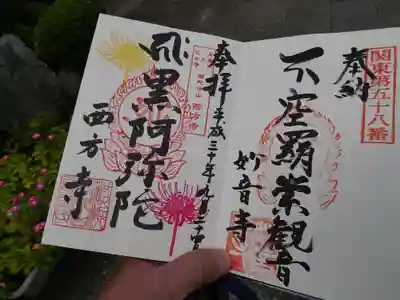 奉納
関東第五十八番
不空羂索観音
妙音寺
奉拝 平成三十年九月二十
黒阿弥陀
西方寺